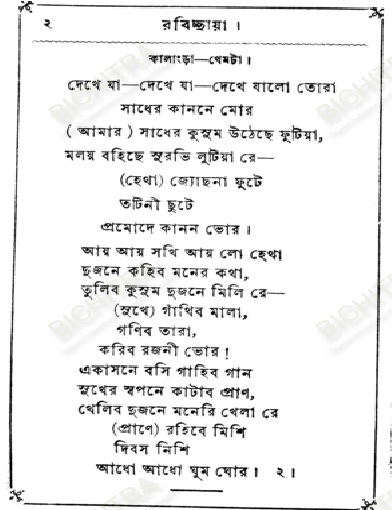 ২ রবিচ্ছায়া ।
কালাংড়া—খেমটা ।
দেখে যা—দেখে যা—দেখে যালো তোরা
সাধের কাননে মোর
( আমার ) সাধের কুসুম উঠেছে ফুটিয়া,
মলয় বহিছে সুরভি লুটিয়া রে—
(হেথা) জ্যোছনা ফুটে
তটিনী ছুটে
প্রমোদে কানন ভোর ।
আয় আয় সখি আয় লো হেথা
দুজনে কহিব মনের কথা,
তুলিব কুসুম দুজনে মিলি রে—
(সুখে) গাঁথিব মালা,
গণিব তারা,
করিব রজনী ভোর !
একাসনে বসি গাহিব গান
সুখের স্বপনে কাটাব প্রাণ,
খেলিব দুজনে মনেরি খেলা রে
(প্রাণে) রহিবে মিশি
দিবস নিশি
আধো আধো ঘুম ঘোর । ২ ।
BICHITRA
BICHITRA
BICHITRA
BICHITRA